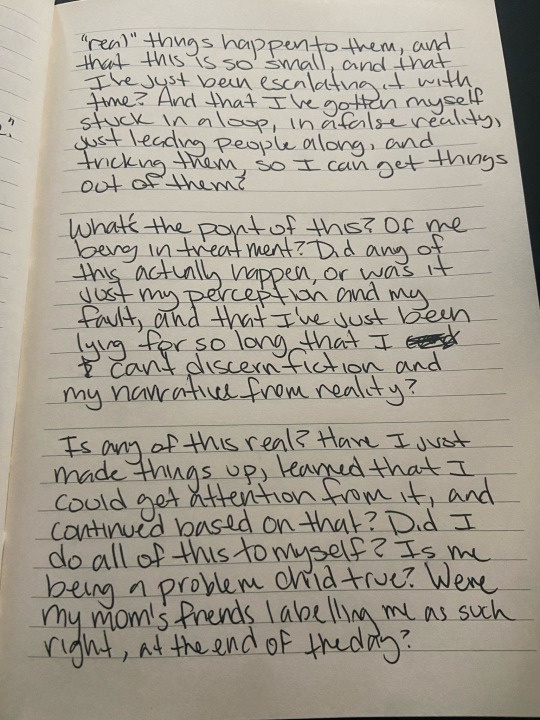 "real" things happen to them, and
that this is so small, and that
I've just been escalating it with
time? And that I've gotten myself
stuck in a loop, in a false reality,
just leading people along, and
tricking them, so I can get things
out of them?
What's the point of this? Of me
being in treatment? Did any of
this actually happen, or was it
just my perception and my
fault, and that I've just been
lying for so long that I
can't discern fiction and
my narrative from reality?
Is any of this real? Have I just
made things up, learned that I
could get attention from it, and
continued based on that? Did I
do all of this to myself? Is me
being a problem child true? Were
my mom's friends labelling me as such
right, at the end of the day?